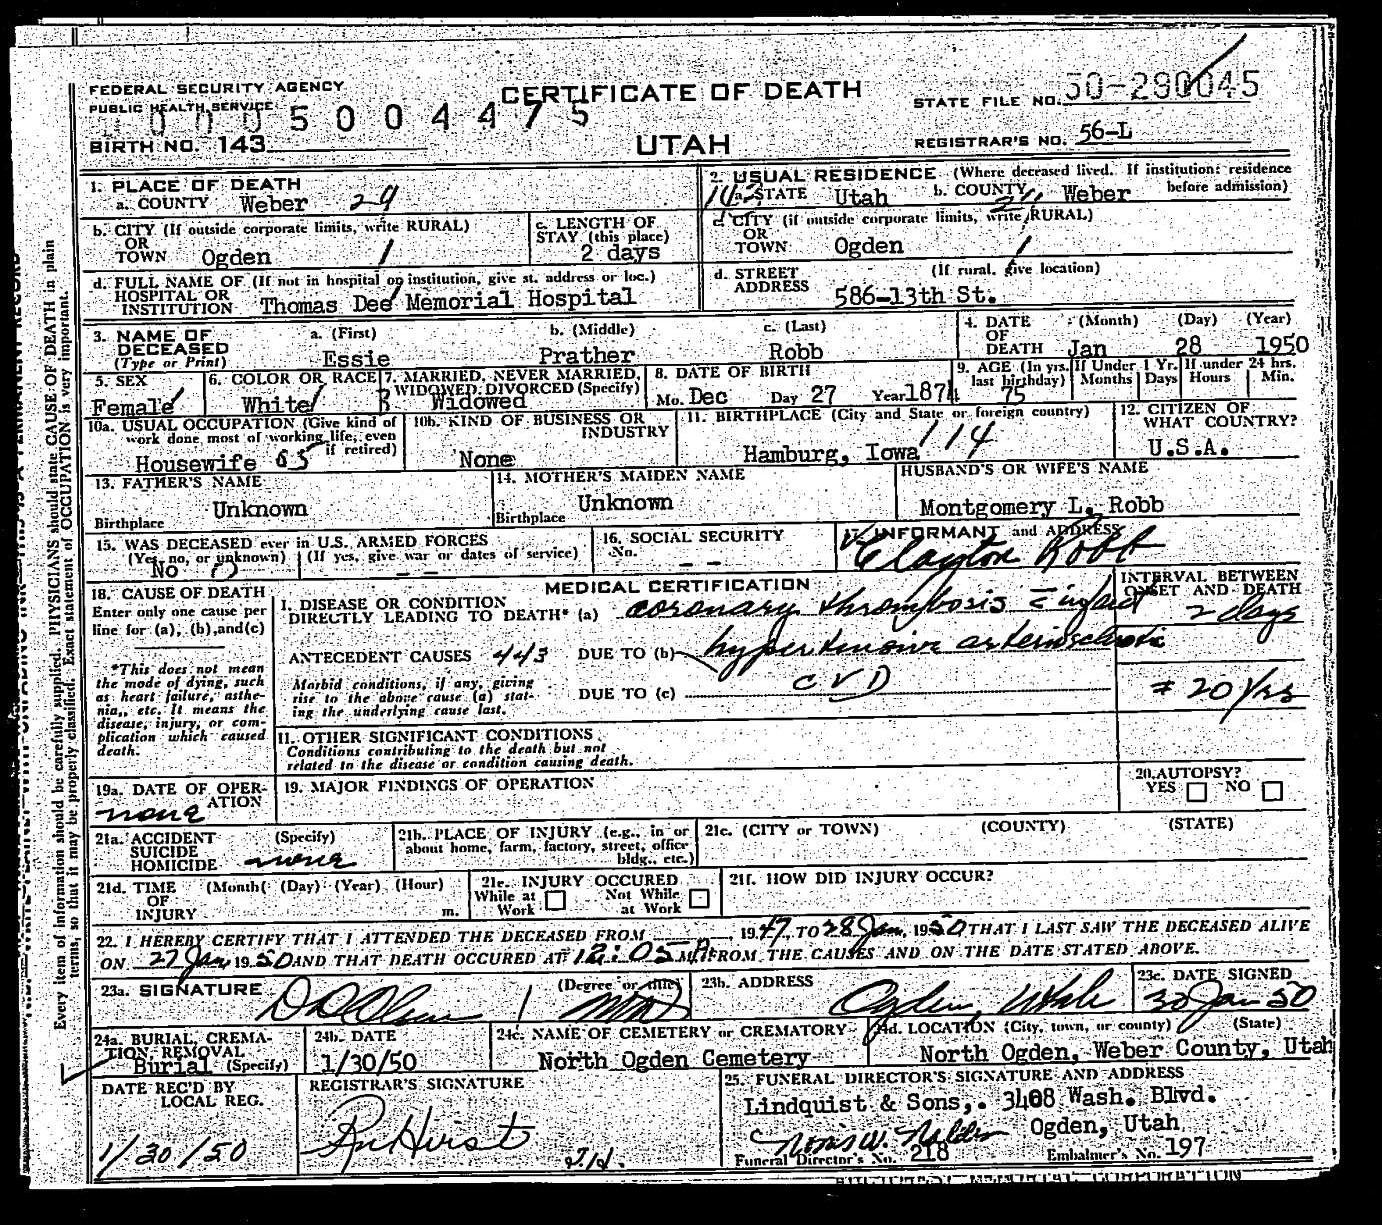 FEDERAL SECURITY AGENCY
PUBLIC HEALTH SERVICE
CERTIFICATE OF DEATH
STATE FILE NO. 50-290045
0005004475
BIRTH NO. 143
UTAH
REGISTRAR'S NO. 56-L
1. PLACE OF DEATH
a. COUNTY Weber 29
2. USUAL RESIDENCE (Where deceased lived. If institution: residence before admission)
a. STATE Utah b. COUNTY Weber
b. CITY (If outside corporate limits, write RURAL)
OR
TOWN Ogden 1
c. LENGTH OF
STAY (this place)
2 days
c. CITY (if outside corporate limits, write RURAL)
OR
TOWN Ogden 1
d. FULL NAME OF (If not in hospital or institution, give st. address or loc.)
HOSPITAL OR
INSTITUTION Thomas Dee Memorial Hospital
d. STREET (If rural, give location)
ADDRESS 586-13th St.
3. NAME OF DECEASED (Type or Print)
a. (First) b. (Middle) c. (Last)
Essie Prather Robb
4. DATE OF DEATH (Month) (Day) (Year)
Jan 28 1950
5. SEX
Female
6. COLOR OR RACE
White
7. MARRIED, NEVER MARRIED,
WIDOWED, DIVORCED (Specify)
Widowed
8. DATE OF BIRTH
Mo. Dec Day 27 Year 1874
9. AGE (In yrs. last birthday) 75
If Under 1 Yr. Months Days
If under 24 hrs. Hours Min.
10a. USUAL OCCUPATION (Give kind of
work done most of working life, even
if retired)
Housewife 85
10b. KIND OF BUSINESS OR
INDUSTRY
None
11. BIRTHPLACE (City and State or foreign country)
114
Hamburg, Iowa
12. CITIZEN OF
WHAT COUNTRY?
U.S.A.
13. FATHER'S NAME
Unknown
Birthplace
14. MOTHER'S MAIDEN NAME
Unknown
Birthplace
HUSBAND'S OR WIFE'S NAME
Montgomery L. Robb
15. WAS DECEASED ever in U.S. ARMED FORCES
(Yes, no, or unknown) (If yes, give war or dates of service)
No 0 --
16. SOCIAL SECURITY
No. --
17. INFORMANT and ADDRESS
Clayton Robb
18. CAUSE OF DEATH
Enter only one cause per
line for (a), (b), and (c)
*This does not mean
the mode of dying, such
as heart failure, asthe-
nia, etc. It means the
disease, injury, or com-
plication which caused
death.
MEDICAL CERTIFICATION
INTERVAL BETWEEN
ONSET AND DEATH
I. DISEASE OR CONDITION
DIRECTLY LEADING TO DEATH* (a) coronary thrombosis
2 days
ANTECEDENT CAUSES 443 DUE TO (b) hypertensive arteriosclerotic
Morbid conditions, if any, giving
rise to the above cause (a) stat-
ing the underlying cause last.
DUE TO (c) CVD
20 yrs
II. OTHER SIGNIFICANT CONDITIONS
Conditions contributing to the death but not
related to the disease or condition causing death.
19a. DATE OF OPER-
ATION
none
19. MAJOR FINDINGS OF OPERATION
20. AUTOPSY?
YES NO
21a. ACCIDENT (Specify)
SUICIDE
HOMICIDE none
21b. PLACE OF INJURY (e.g., in or
about home, farm, factory, street, office
bldg., etc.)
21c. (CITY or TOWN) (COUNTY) (STATE)
21d. TIME (Month) (Day) (Year) (Hour)
OF
INJURY m.
21e. INJURY OCCURED
While at Work Not While at Work
21f. HOW DID INJURY OCCUR?
22. I HEREBY CERTIFY THAT I ATTENDED THE DECEASED FROM 1947, TO 28 Jan, 1950 THAT I LAST SAW THE DECEASED ALIVE
ON 27 Jan 1950 AND THAT DEATH OCCURED AT 12:05 M. FROM THE CAUSES AND ON THE DATE STATED ABOVE.
23a. SIGNATURE (Degree or title)
MD
23b. ADDRESS
Ogden Utah
23c. DATE SIGNED
30 Jan 50
24a. BURIAL, CREMA-
TION, REMOVAL
Burial (Specify)
24b. DATE
1/30/50
24c. NAME OF CEMETERY or CREMATORY
North Ogden Cemetery
24d. LOCATION (City, town, or county) (State)
North Ogden, Weber County, Utah
DATE REC'D BY
LOCAL REG.
1/30/50
REGISTRAR'S SIGNATURE
25. FUNERAL DIRECTOR'S SIGNATURE AND ADDRESS
Lindquist & Sons,. 3408 Wash. Blvd.
Ogden, Utah
Funeral Director's No. 218 Embalmer's No. 197
Every item of information should be carefully supplied. PHYSICIANS should state CAUSE OF DEATH in plain
terms, so that it may be properly classified. Exact statement of OCCUPATION is very important.